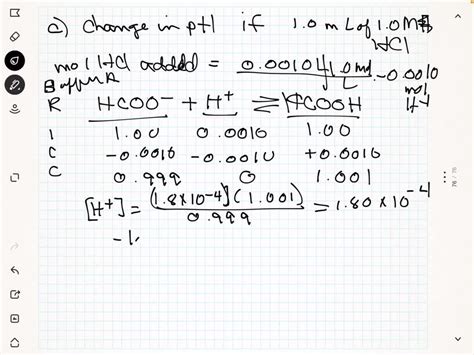 c) Change in pH if 1.0 mL of 1.0 M
HCl
mol HCl added = 0.0010 L | 1.0 mol = 0.0010
L mol
Buffer H+
R HCOO⁻ + H⁺ ⇌ HCOOH
I 1.00 0.0010 1.00
C -0.0010 -0.0010 +0.0010
C 0.999 0 1.001
[H⁺] = (1.8×10⁻⁴)(1.001) = 1.80×10⁻⁴
0.999